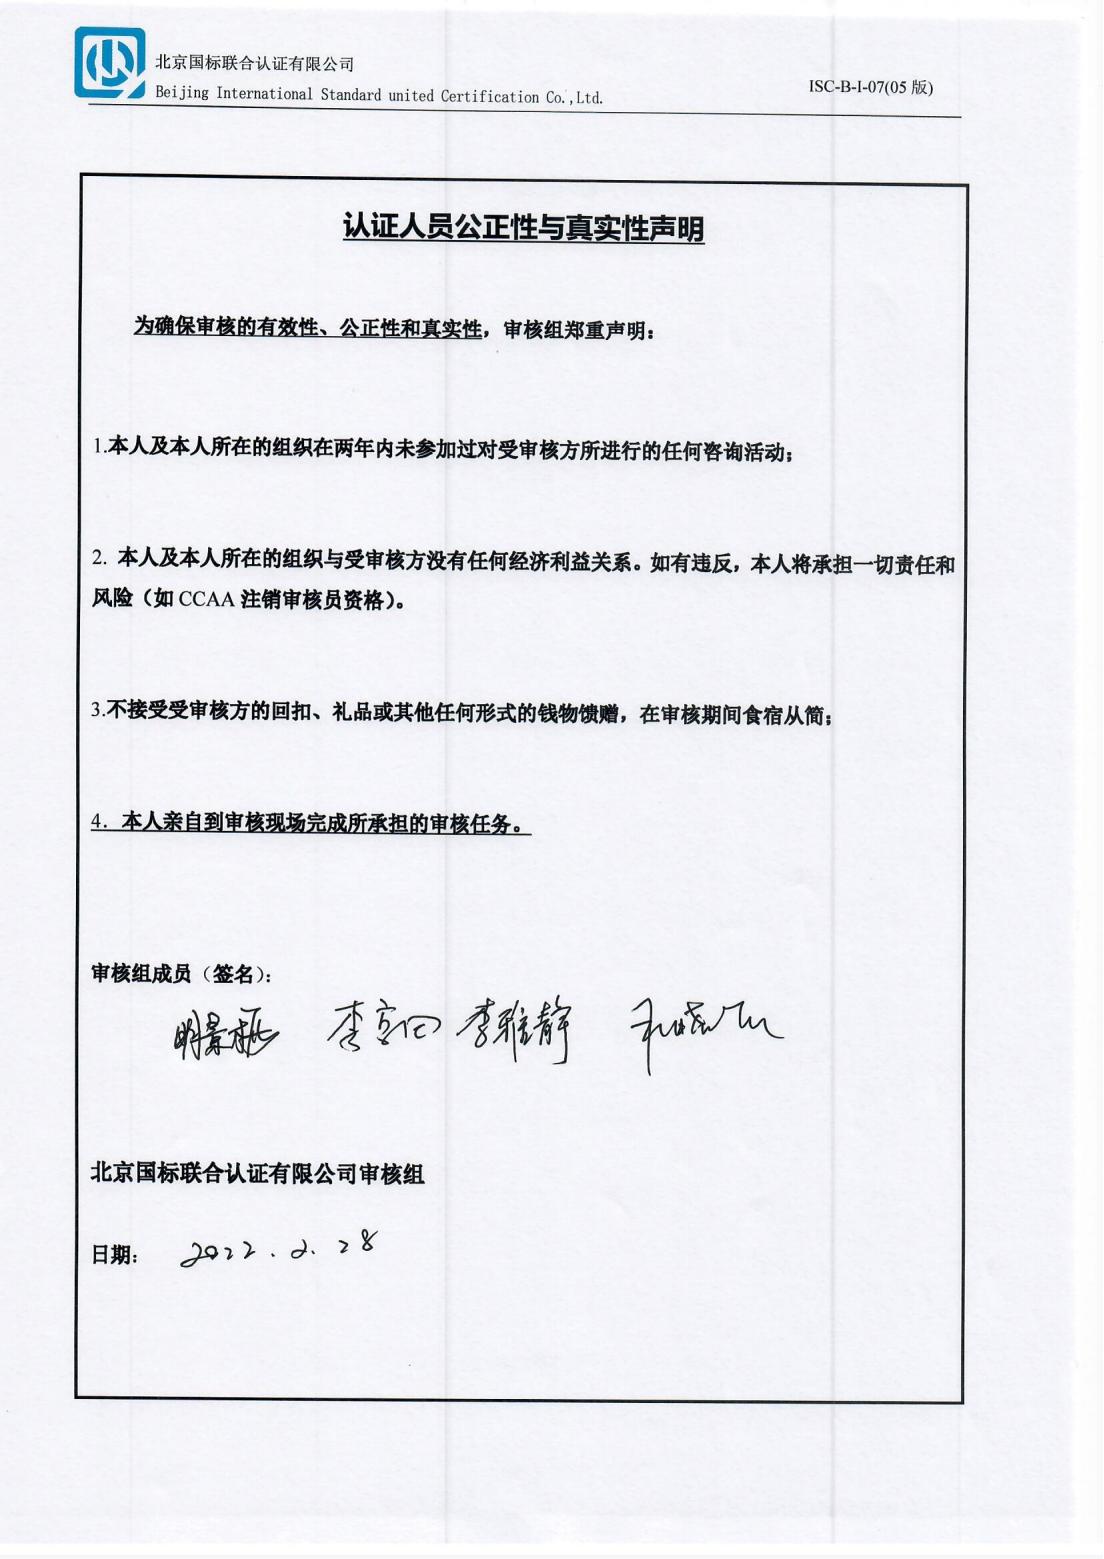 北京国标联合认证有限公司
Beijing International Standard united Certification Co.,Ltd.
ISC-B-I-07(05 版)
认证人员公正性与真实性声明
为确保审核的有效性、公正性和真实性，审核组郑重声明：
1.本人及本人所在的组织在两年内未参加过对受审核方所进行的任何咨询活动；
2. 本人及本人所在的组织与受审核方没有任何经济利益关系。如有违反，本人将承担一切责任和
风险（如 CCAA 注销审核员资格）。
3.不接受受审核方的回扣、礼品或其他任何形式的钱物馈赠，在审核期间食宿从简；
4．本人亲自到审核现场完成所承担的审核任务。
审核组成员（签名）：
李雅静
北京国标联合认证有限公司审核组
日期： 2022.2.28